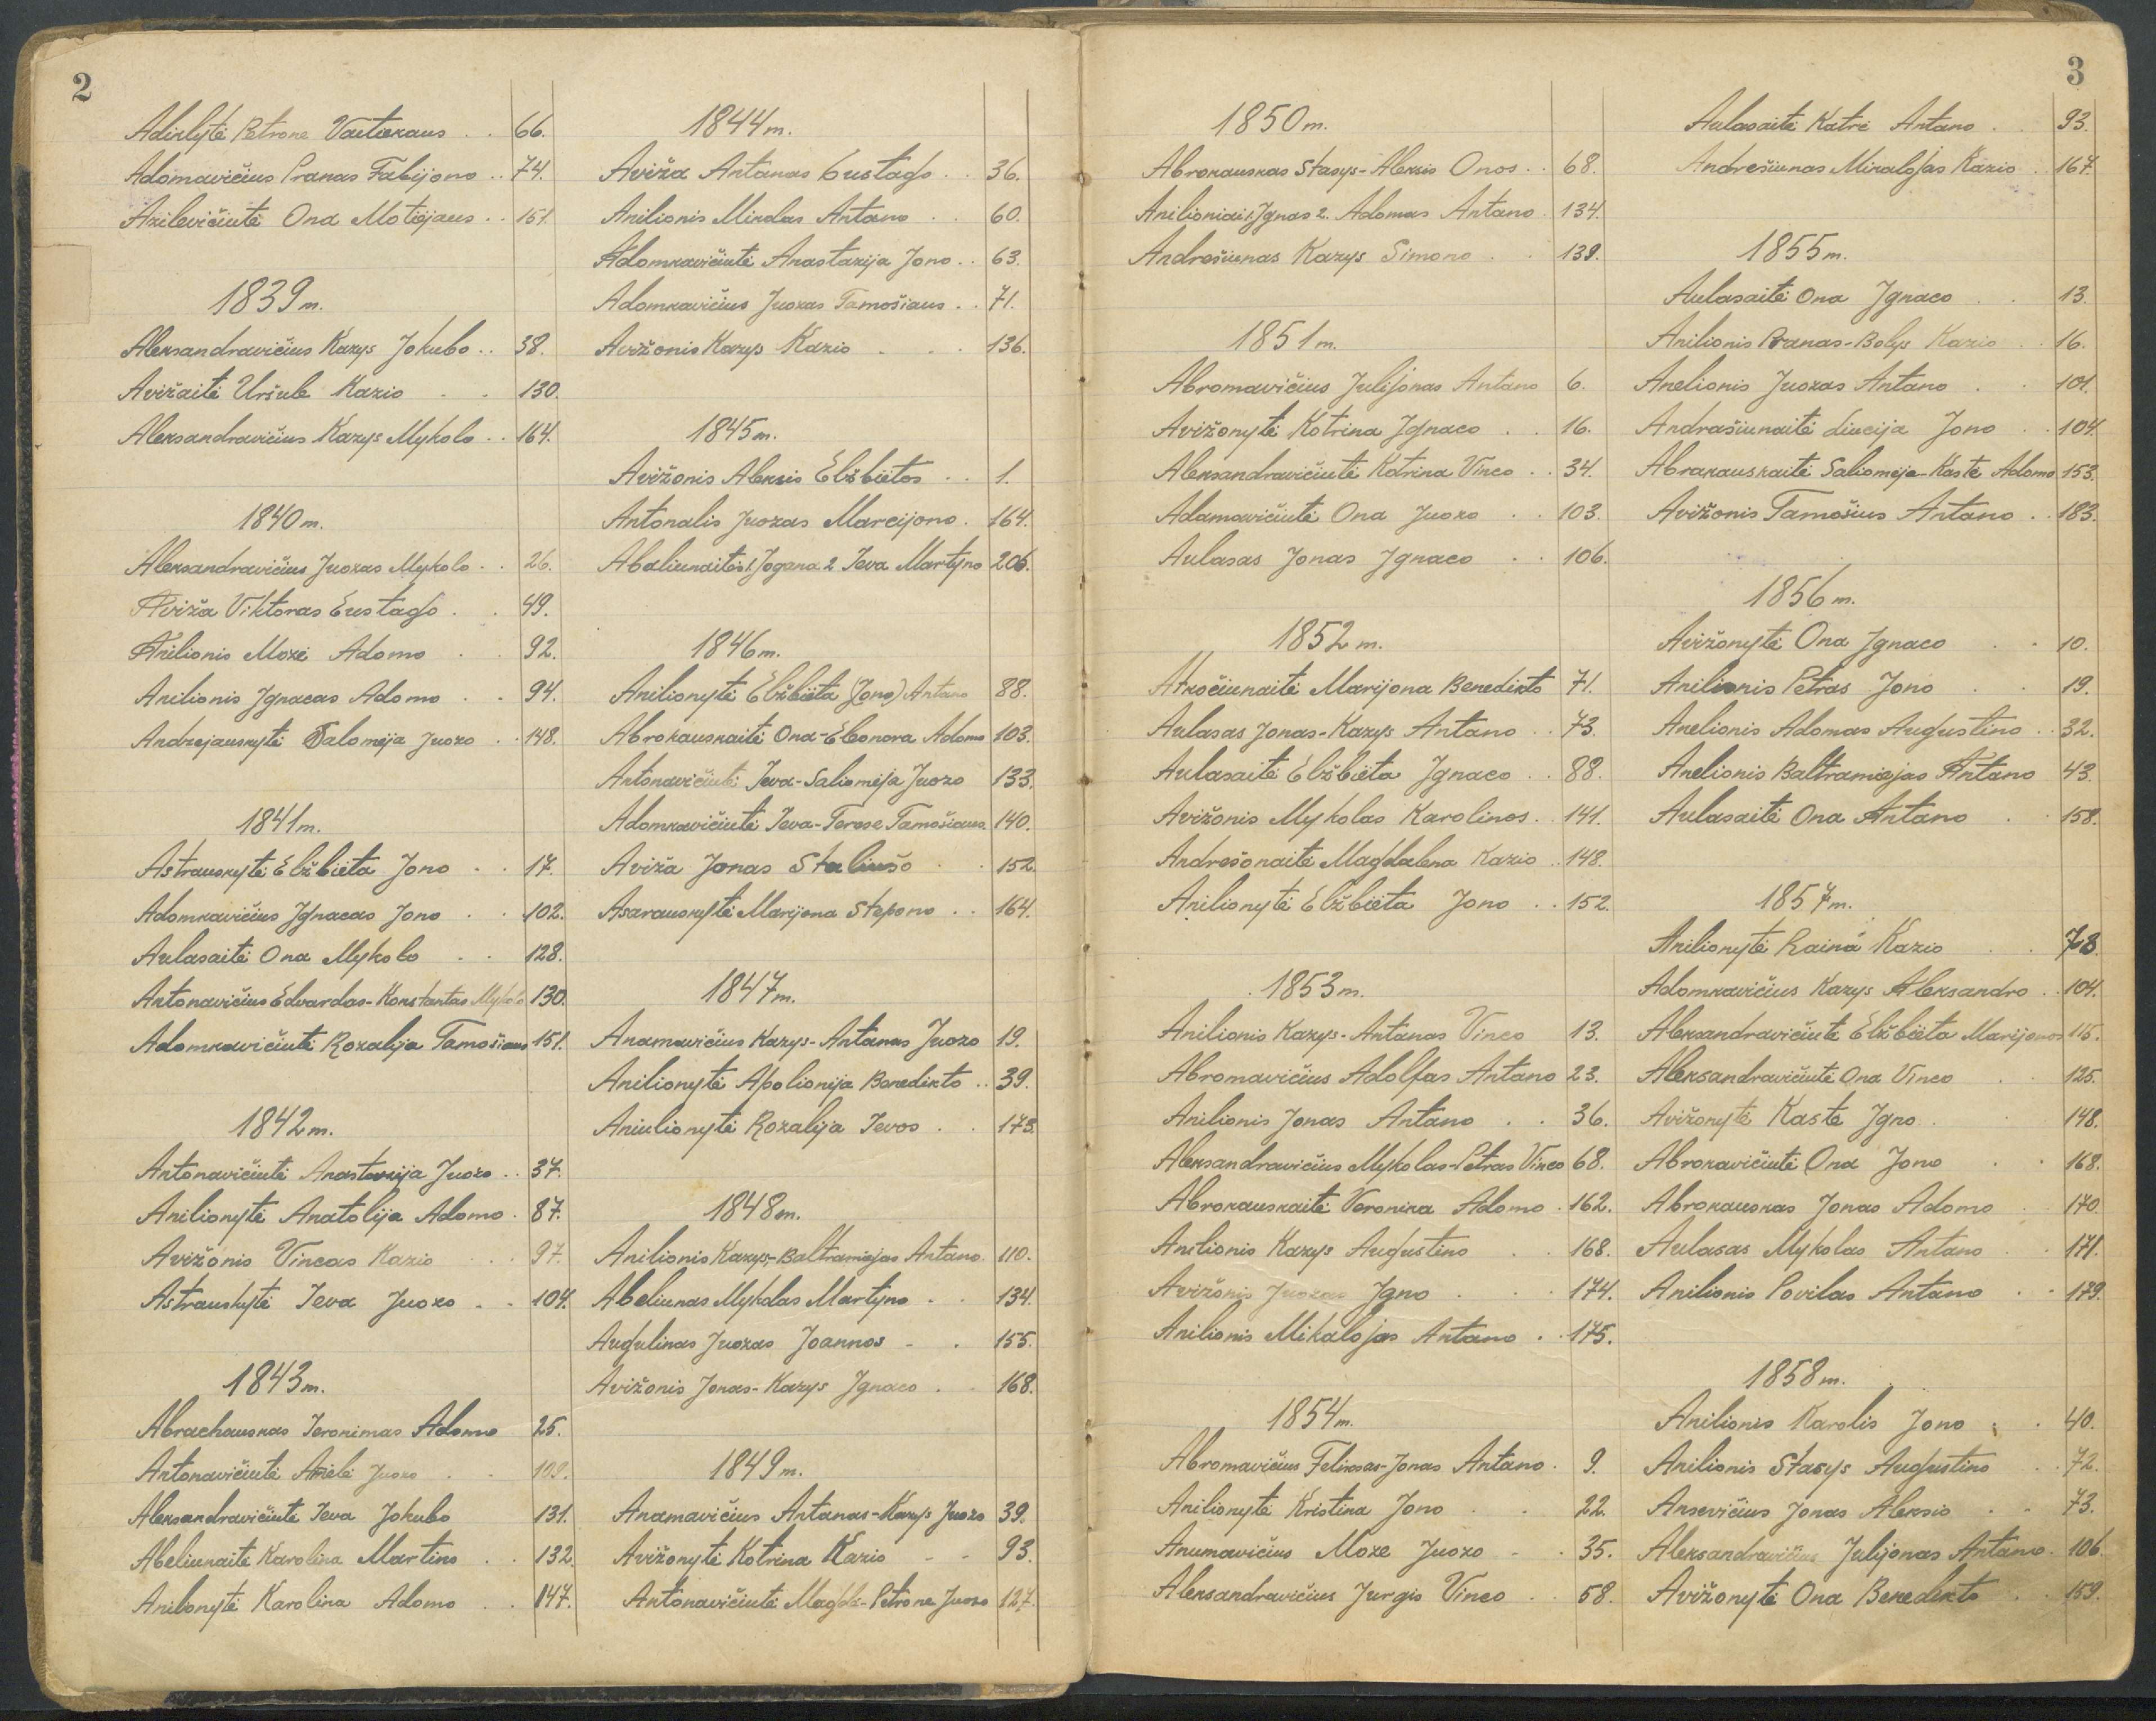 2
Adirlytė Petronė Vaitiekaus . . 66.
Adomavičius Pranas Fabijono . . 74.
Azilevičiutė Ona Motiejaus . . 151.
1839 m.
Aleksandravičius Kazys Jokubo . . 38.
Avižaitė Uršulė Kazio . . 130.
Aleksandravičius Kazys Mykolo . . 164.
1840 m.
Aleksandravičius Juozas Mykolo . . 26.
Aviža Viktoras Eustago . . 49.
Anilionis Mozė Adomo . . 92.
Anilionis Ignacas Adomo . . 94.
Andzejauskytė Salomėja Juozo . . 148.
1841 m.
Astrauskytė Elžbieta Jono . . 17.
Adomkavičius Ignacas Jono . . 102.
Aulasaitė Ona Mykolo . . 128.
Antonavičius Edvardas-Konstantas Mykolo 130.
Adomkavičiutė Rozalija Tamošiaus 151.
1842 m.
Antonavičiutė Anastazija Juozo . . 37.
Anilionytė Anatolija Adomo . 87.
Avižonis Vincas Kazio . . 97.
Astrauskytė Ieva Juozo . . 104.
1843 m.
Abrachauskas Ieronimas Adomo 25.
Antonavičiutė Anelė Juozo . . 109.
Aleksandravičiutė Ieva Jokubo 131.
Abeliunaitė Karolina Martino . . 132.
Anilionytė Karolina Adomo . . 147.
1844 m.
Aviža Antanas Eustago . . 36.
Anilionis Mikolas Antano . . 60.
Adomkavičiutė Anastazija Jono . . 63.
Adomkavičius Juozas Tamošiaus . . 71.
Avižonis Kazys Kazio . . . 136.
1845 m.
Avižonis Aleksis Elžbietos . . 1.
Antonalis Juozas Marcijono . 164.
Abaliunaitės 1. Jogana 2 Ieva Martyno 206.
1846 m.
Anilionytė Elžbieta (Jono) Antano 88.
Abrokauskaitė Ona-Eleonora Adomo 103.
Antonavičiutė Ieva-Saliomėja Juozo 133.
Adomkavičiutė Ieva-Teresė Tamošiaus 140.
Aviža Jonas Staliušo . . 152.
Asarauskytė Marijona Stepono . . 164.
1847 m.
Anamavičius Kazys-Antanas Juozo 19.
Anilionytė Apolionija Benedikto . . 39.
Aniulionytė Rozalija Ievos . . 173.
1848 m.
Anilionis Kazys-Baltramiejas Antano. 110.
Abeliunas Mykolas Martyno . . 134.
Augulinas Juozas Joannos . . 155.
Avižonis Jonas-Kazys Ignaco . . 168.
1849 m.
Anamavičius Antanas-Kazys Juozo 39.
Avižonytė Kotrina Kazio . . 93.
Antonavičiutė Magdė-Petronė Juozo 127.
3
1850 m.
Abrokauskas Stasys-Aleksis Onos . . 68.
Anilioniai 1. Ignas 2. Adomas Antano . 134.
Andrešiunas Kazys Simono . . 139.
1851 m.
Abromavičius Julijonas Antano 6.
Avižonytė Kotrina Ignaco . . 16.
Aleksandravičiutė Kotrina Vinco . . 34.
Adamavičiutė Ona Juozo . . 103.
Aulasas Jonas Ignaco . . 106.
1852 m.
Atkočiunaitė Marijona Benedikto 71.
Aulasas Jonas-Kazys Antano . . 73.
Aulasaitė Elžbieta Ignaco . . 88.
Avižonis Mykolas Karolinos . . 141.
Andrešonaitė Magdalena Kazio . . 148.
Anilionytė Elžbieta Jono . . 152.
1853 m.
Anilionis Kazys-Antanas Vinco 13.
Abromavičius Adolfas Antano 23.
Anilionis Jonas Antano . . 36.
Aleksandravičius Mykolas-Petras Vinco 68.
Abrokauskaitė Veronika Adomo . 162.
Anilionis Kazys Augustino . . 168.
Avižonis Juozas Igno . . . 174.
Anilionis Mikalojas Antano . . 175.
1854 m.
Abromavičius Feliksas-Jonas Antano . 9.
Anilionytė Kristina Jono . . 22.
Anumavičius Mozė Juozo . . 35.
Aleksandravičius Jurgis Vinco . . 58.
Aulasaitė Katrė Antano . . 93.
Andrešiunas Mikalojas Kazio . 167.
1855 m.
Aulasaitė Ona Ignaco . . 13.
Anilionis Pranas-Bolys Kazio . . 16.
Anelionis Juozas Antano . . 101.
Andrašiunaitė Liucija Jono . . 104.
Abrakauskaitė Saliomėja-Kastė Adomo 153.
Avižonis Tamošius Antano . . 183.
1856 m.
Avižonytė Ona Ignaco . . 10.
Anilionis Petras Jono . . 19.
Anelionis Adomas Augustino . . 32.
Anelionis Baltramiejas Antano 43.
Aulasaitė Ona Antano . . 158.
1857 m.
Anilionytė Raina Kazio . . 78.
Adomkavičius Kazys Aleksandro . . 104.
Aleksandravičiutė Elžbieta Marijonos 115.
Aleksandravičiutė Ona Vinco . . 125.
Avižonytė Kastė Igno . . 148.
Abrokavičiutė Ona Jono . . 168.
Abrokauskas Jonas Adomo . . 170
Aulasas Mykolas Antano . . 171.
Anilionis Povilas Antano . . 179.
1858 m.
Anilionis Karolis Jono . . 40.
Anilionis Stasys Augustino . . 72.
Ansevičius Jonas Aleksio . . 73.
Aleksandravičius Julijonas Antano . 106.
Avižonytė Ona Benedikto . . 159.